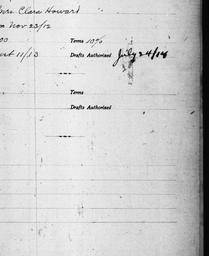 Mrs Clara Howard
Nov 23/12
00 Terms 10%
11/13 Drafts Authorized July 24/14
Terms
Drafts Authorized